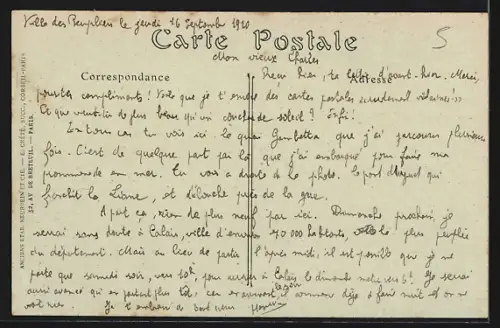 Ville des Peupliers le jeudi 16 Septembre 1920
Carte Postale
5
Mon vieux Charles
Correspondance
Adresse
Merci
pour tes compliments! Voilà que je t'envoie des cartes postales
Et que veux-tu de plus beau qu'un coucher de soleil? Enfin!
En tous cas tu vois ici le quai Gambetta que j'ai parcouru plusieurs
fois. C'est de quelque part par là que j'ai embarqué pour faire ma
promenade en mer. Tu vois à droite de la photo. le pont Marguet qui
franchit la Liane, et débouche près de la gare.
A part ça, rien de plus neuf par ici. Dimanche prochain, je
serai sans doute à Calais, ville d'environ 70 000 habitants, la plus peuplée
du département. Mais au lieu de partir l'après midi, il est possible que je ne
parte que samedi soir, vers 10h, pour arriver à Calais le dimanche matin vers 6h. Je serai
aussi avancé qu'en partant plus tôt, car en arrivant, il commence déjà à faire nuit et on ne
voit rien. Je t'embrasse de tout cœur
ANCIENS ETAB. NEURDEIN ET CIE. — E. CRÉTÉ, SUCC. CORBEIL-PARIS
52, AV. DE BRETEUIL. — PARIS.